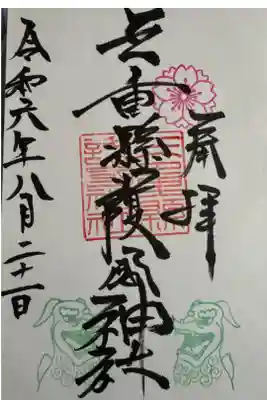 奉拝
三重縣護國神社
令和六年八月二十一日